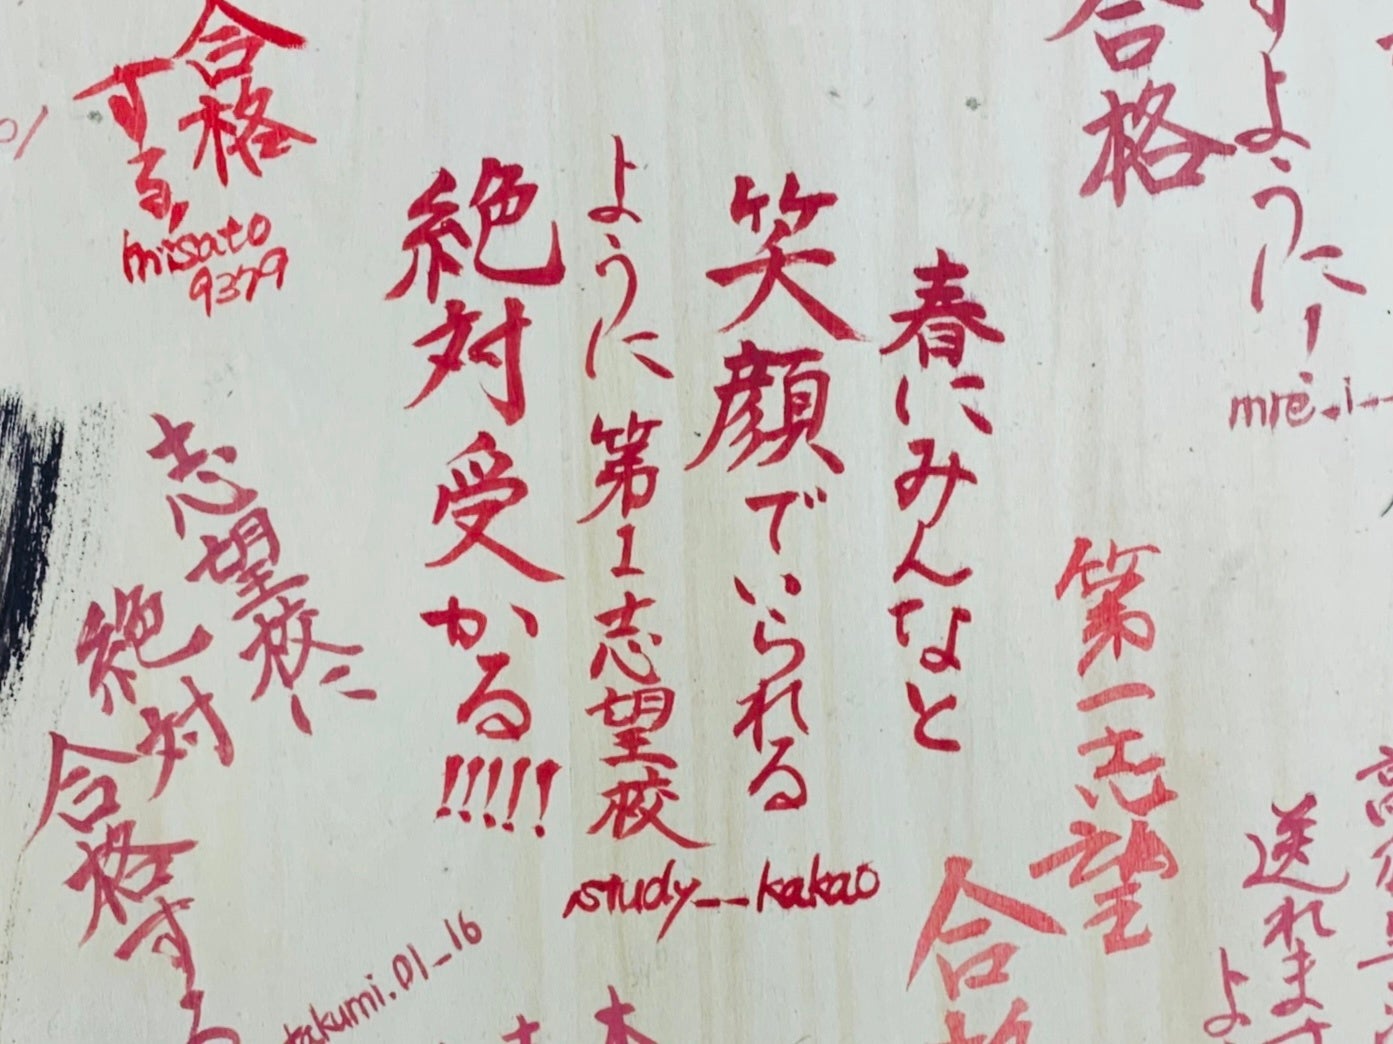 合格
ようにー!
mre.i_
春にみんなと
笑顔でいられる
ように 第1志望校
絶対受かる!!!!!
study__kakao
合格
する,
misato
9379
第一志望
合格
志望校に
絶対
合格する
takumi.01_16
送れます
よ